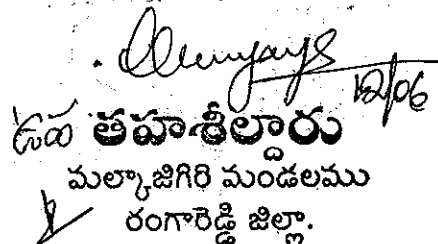 12/06
ఉప తహశీల్దారు
మల్కాజిగిరి మండలము
రంగారెడ్డి జిల్లా.